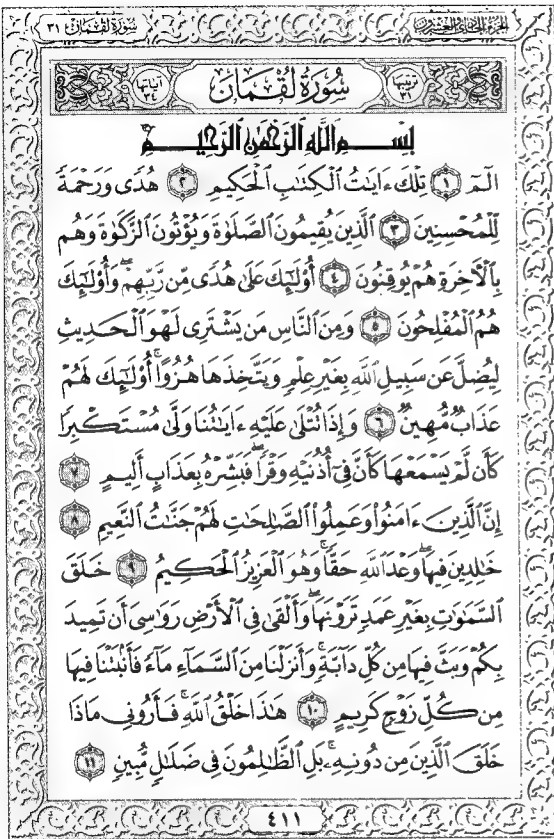 سورة لقمان ٣١ الجزء الحادي والعشرون
ترتيبها ٣١ سُورَةُ لُقْمَان آياتها ٣٤
بِسْمِ اللَّهِ الرَّحْمَٰنِ الرَّحِيمِ
الٓمٓ ١ تِلْكَ ءَايَٰتُ ٱلْكِتَٰبِ ٱلْحَكِيمِ ٢ هُدًى وَرَحْمَةً
لِّلْمُحْسِنِينَ ٣ ٱلَّذِينَ يُقِيمُونَ ٱلصَّلَوٰةَ وَيُؤْتُونَ ٱلزَّكَوٰةَ وَهُم
بِٱلْءَاخِرَةِ هُمْ يُوقِنُونَ ٤ أُو۟لَٰٓئِكَ عَلَىٰ هُدًى مِّن رَّبِّهِمْ ۖ وَأُو۟لَٰٓئِكَ
هُمُ ٱلْمُفْلِحُونَ ٥ وَمِنَ ٱلنَّاسِ مَن يَشْتَرِى لَهْوَ ٱلْحَدِيثِ
لِيُضِلَّ عَن سَبِيلِ ٱللَّهِ بِغَيْرِ عِلْمٍ وَيَتَّخِذَهَا هُزُوًا ۚ أُو۟لَٰٓئِكَ لَهُمْ
عَذَابٌ مُّهِينٌ ٦ وَإِذَا تُتْلَىٰ عَلَيْهِ ءَايَٰتُنَا وَلَّىٰ مُسْتَكْبِرًا
كَأَن لَّمْ يَسْمَعْهَا كَأَنَّ فِىٓ أُذُنَيْهِ وَقْرًا ۖ فَبَشِّرْهُ بِعَذَابٍ أَلِيمٍ ٧
إِنَّ ٱلَّذِينَ ءَامَنُوا۟ وَعَمِلُوا۟ ٱلصَّٰلِحَٰتِ لَهُمْ جَنَّٰتُ ٱلنَّعِيمِ ٨
خَٰلِدِينَ فِيهَا ۖ وَعْدَ ٱللَّهِ حَقًّا ۚ وَهُوَ ٱلْعَزِيزُ ٱلْحَكِيمُ ٩ خَلَقَ
ٱلسَّمَٰوَٰتِ بِغَيْرِ عَمَدٍ تَرَوْنَهَا ۖ وَأَلْقَىٰ فِى ٱلْأَرْضِ رَوَٰسِىَ أَن تَمِيدَ
بِكُمْ وَبَثَّ فِيهَا مِن كُلِّ دَآبَّةٍ ۚ وَأَنزَلْنَا مِنَ ٱلسَّمَآءِ مَآءً فَأَنۢبَتْنَا فِيهَا
مِن كُلِّ زَوْجٍ كَرِيمٍ ١٠ هَٰذَا خَلْقُ ٱللَّهِ فَأَرُونِى مَاذَا
خَلَقَ ٱلَّذِينَ مِن دُونِهِۦ ۚ بَلِ ٱلظَّٰلِمُونَ فِى ضَلَٰلٍ مُّبِينٍ ١١
٤١١